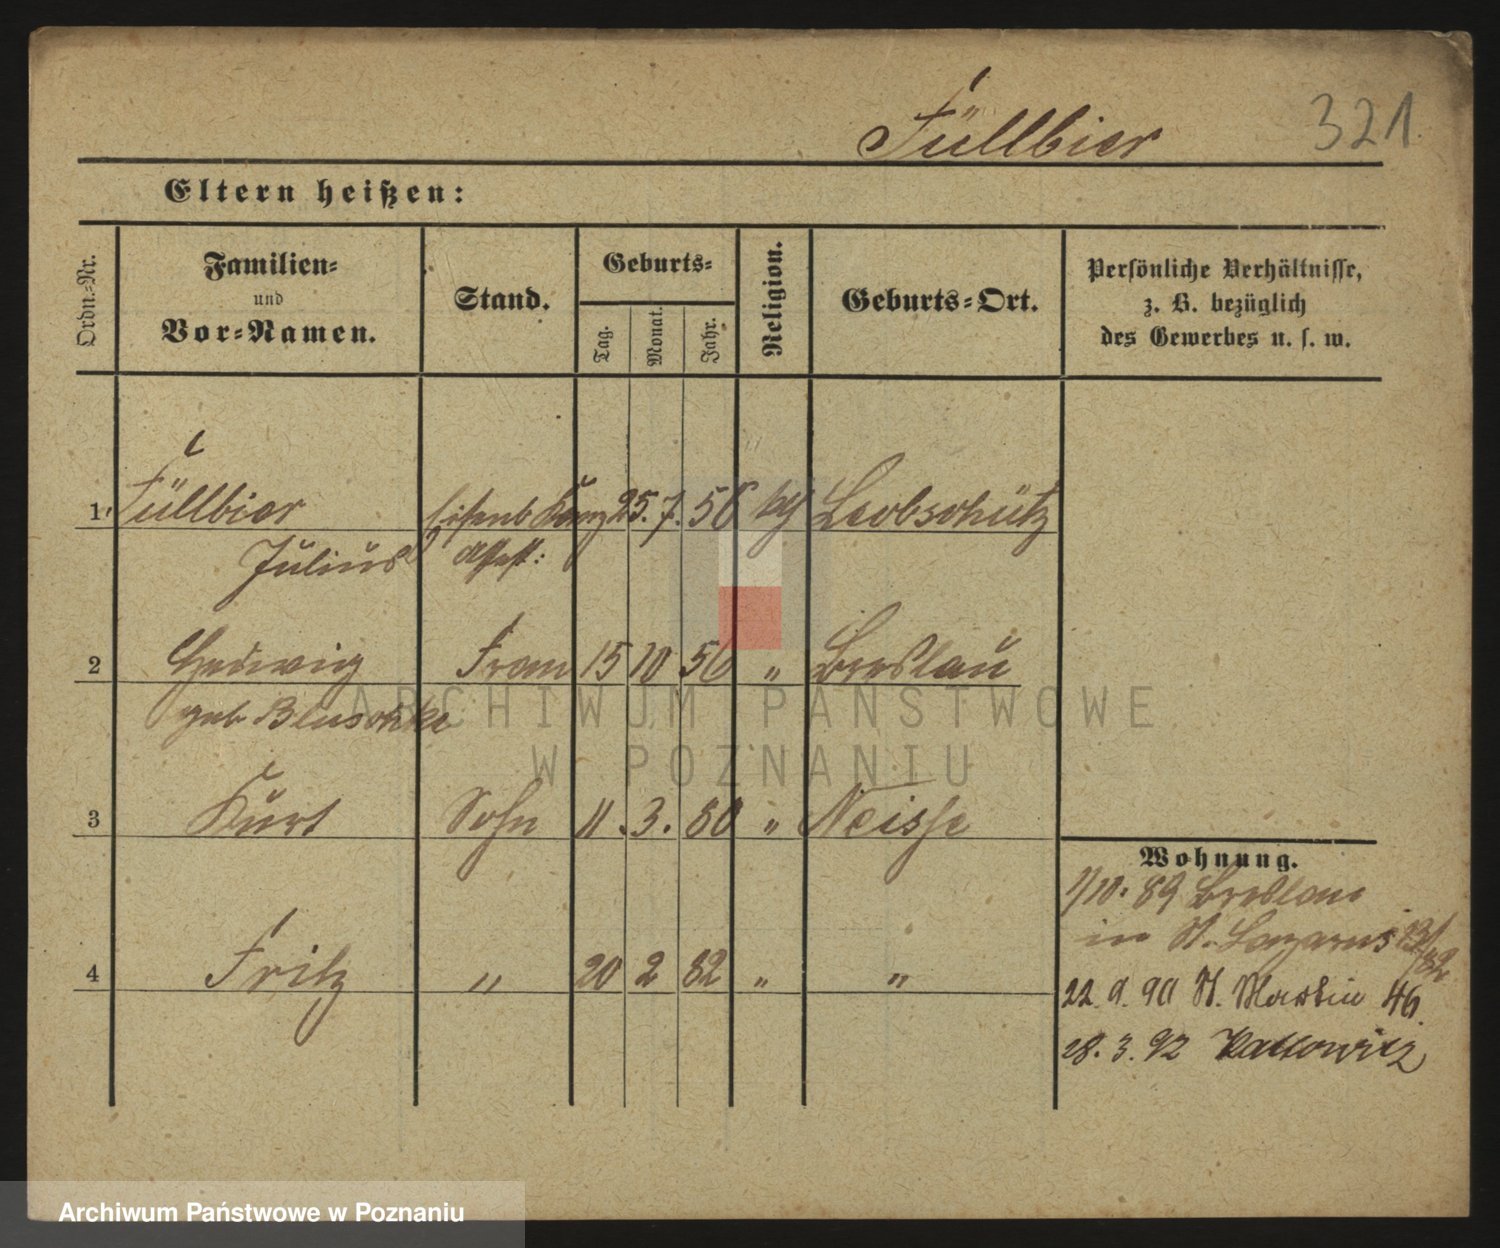 Füllbier 321.
Eltern heißen:
Ordn.-Nr. Familien- und Vor-Namen. Stand. Geburts- Tag. Monat. Jahr. Religion. Geburts-Ort. Persönliche Verhältnisse, z. B. bezüglich des Gewerbes u. s. w.
1 Füllbier Eisenb 25. 7. 56 Leobschütz
Julius
2 Hedwig Frau 15 10 56 " Breslau
geb Bluschke
ARCHIWUM PAŃSTWOWE
W POZNANIU
3 Kurt Sohn 11. 3. 80 " Neisse
Wohnung.
1/10. 89 Breslau
in St. Lazarus
4 Fritz " 20 2 82 " "
22. 9. 90 St. Martin 46.
28. 3. 92 Kattowitz
Archiwum Państwowe w Poznaniu